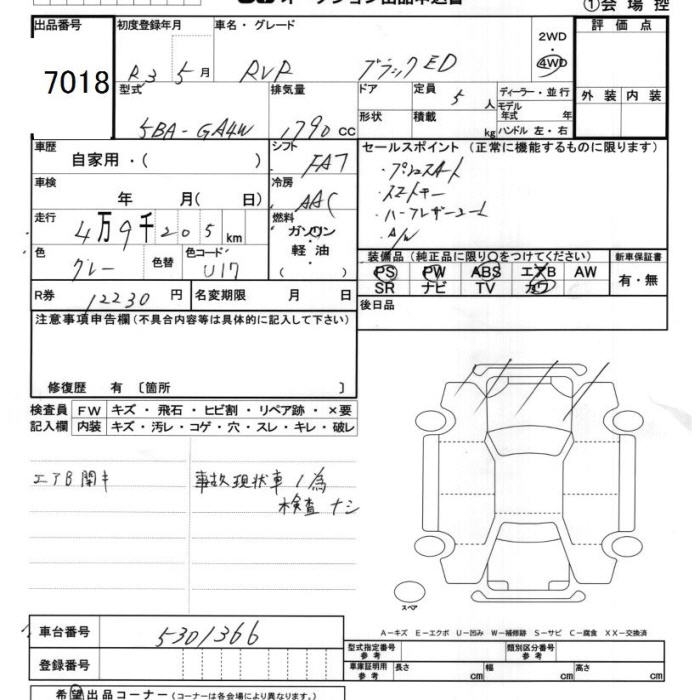 オークション出品申込書
①会場控
出品番号 7018
初度登録年月 R3 5月
車名・グレード RVR ブラックED
2WD ・ 4WD
評価点
外装 内装
型式 5BA-GA4W
排気量 1790 CC
ドア 形状
定員 5 人
積載 kg
ディーラー・並行
モデル年式 年
ハンドル 左・右
車歴 自家用・( )
シフト FAT
セールスポイント (正常に機能するものに限ります)
・プッシュスタート
・スマートキー
・ハーフレザーシート
・A/W
車検 年 月( 日)
冷房 AAC
走行 4万9千205km
燃料 ガソリン 軽・油 ( )
色 グレー 色替
色コード U17
装備品 (純正品に限り○をつけてください)
PS PW ABS エアB AW
SR ナビ TV カワ
新車保証書 有・無
R券 12230 円
名変期限 月 日
後日品
注意事項申告欄 (不具合内容等は具体的に記入して下さい)
修復歴 有 〔箇所 〕
検査員記入欄
FW キズ・飛石・ヒビ割・リペア跡・×要
内装 キズ・汚レ・コゲ・穴・スレ・キレ・破レ
エアB開キ
事故現状車ノ為
検査ナシ
スペア
車台番号 5301366
A-キズ E-エクボ U-凹み W-補修跡 S-サビ C-腐食 XX-交換済
登録番号
型式指定番号 参考
類別区分番号 参考
車庫証明用 参考 長さ cm 幅 cm 高さ cm
希望出品コーナー (コーナーは各会場により異なります。)